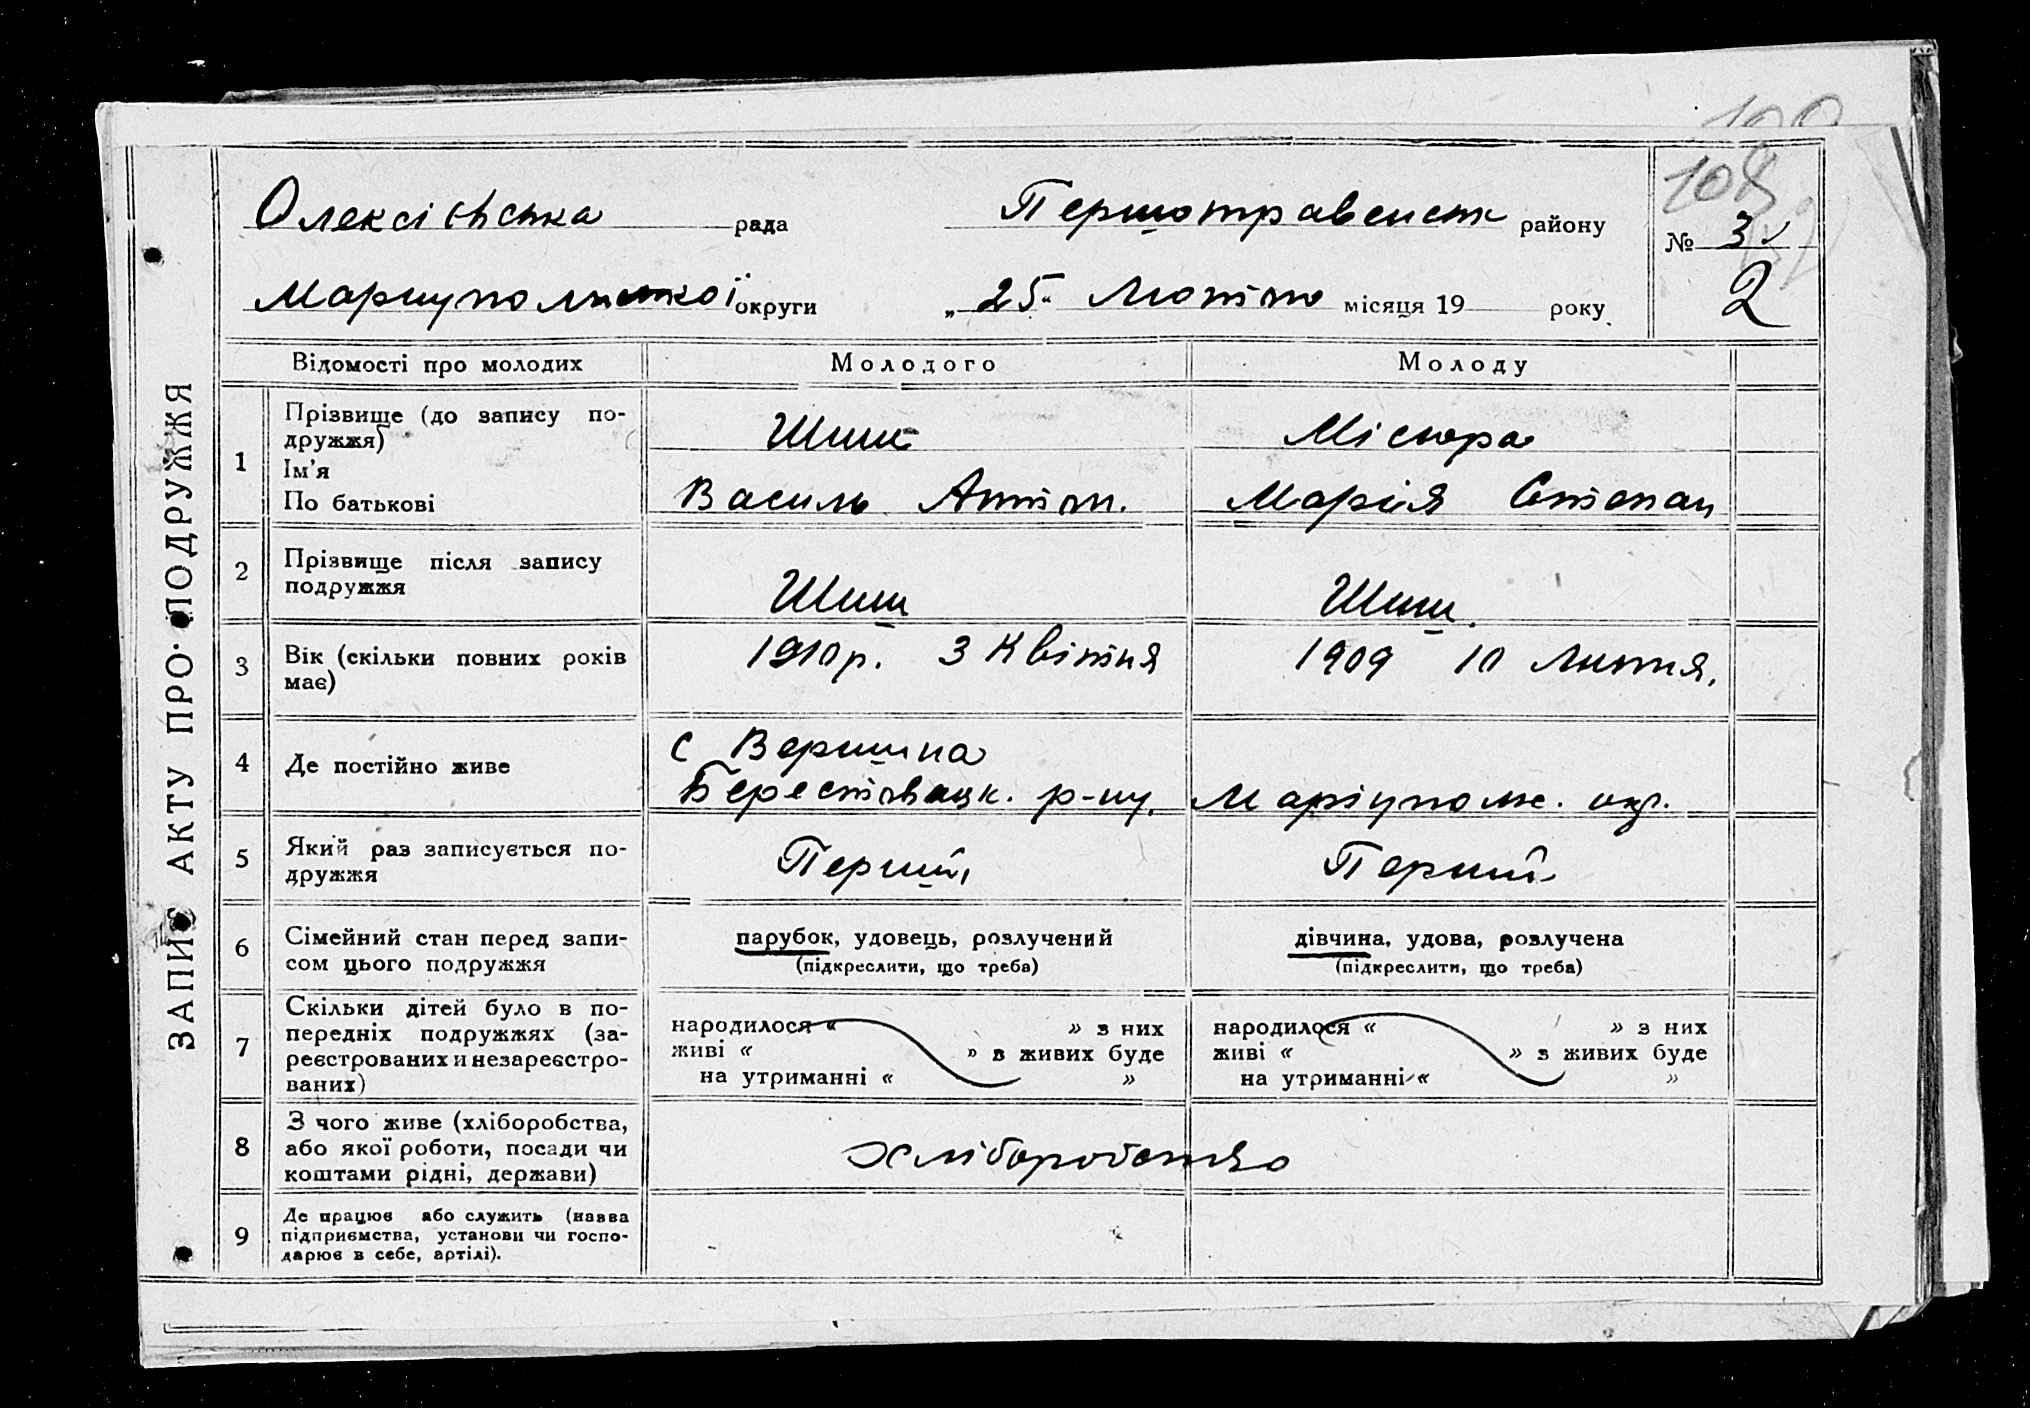 108
Олексіївська рада Першотравенськ району № 3
Маріупольської округи „ 25 " Лютого місяця 19 року 2
ЗАПИС АКТУ ПРО ПОДРУЖЖЯ
Відомості про молодих Молодого Молоду
1 Прізвище (до запису по-
дружжя)
Шиш Місюра
Ім'я
По батькові Василь Антон. Марія Степан
2 Прізвище після запису
подружжя Шиш Шиш.
3 Вік (скільки повних років
має) 1910 р. 3 Квітня 1909 10 Липня.
4 Де постійно живе с Вершина
Берестовацк. р-ну. Маріуполс. окр.
5 Який раз записується по-
дружжя Перший Перший
6 Сімейний стан перед запи-
сом цього подружжя
парубок, удовець, розлучений дівчина, удова, розлучена
(підкреслити, що треба) (підкреслити, що треба)
7 Скільки дітей було в по-
передніх подружжях (за-
реєстрованих и незареєстро-
ваних)
народилося „ " з них народилося „ " з них
живі „ " в живих буде живі „ " з живих буде
на утриманні „ " на утриманні „ "
8 З чого живе (хліборобства,
або якої роботи, посади чи
коштами рідні, держави)
хліборобство
9 Де працює або служить (назва
підприємства, установи чи госпо-
дарює в себе, артілі).